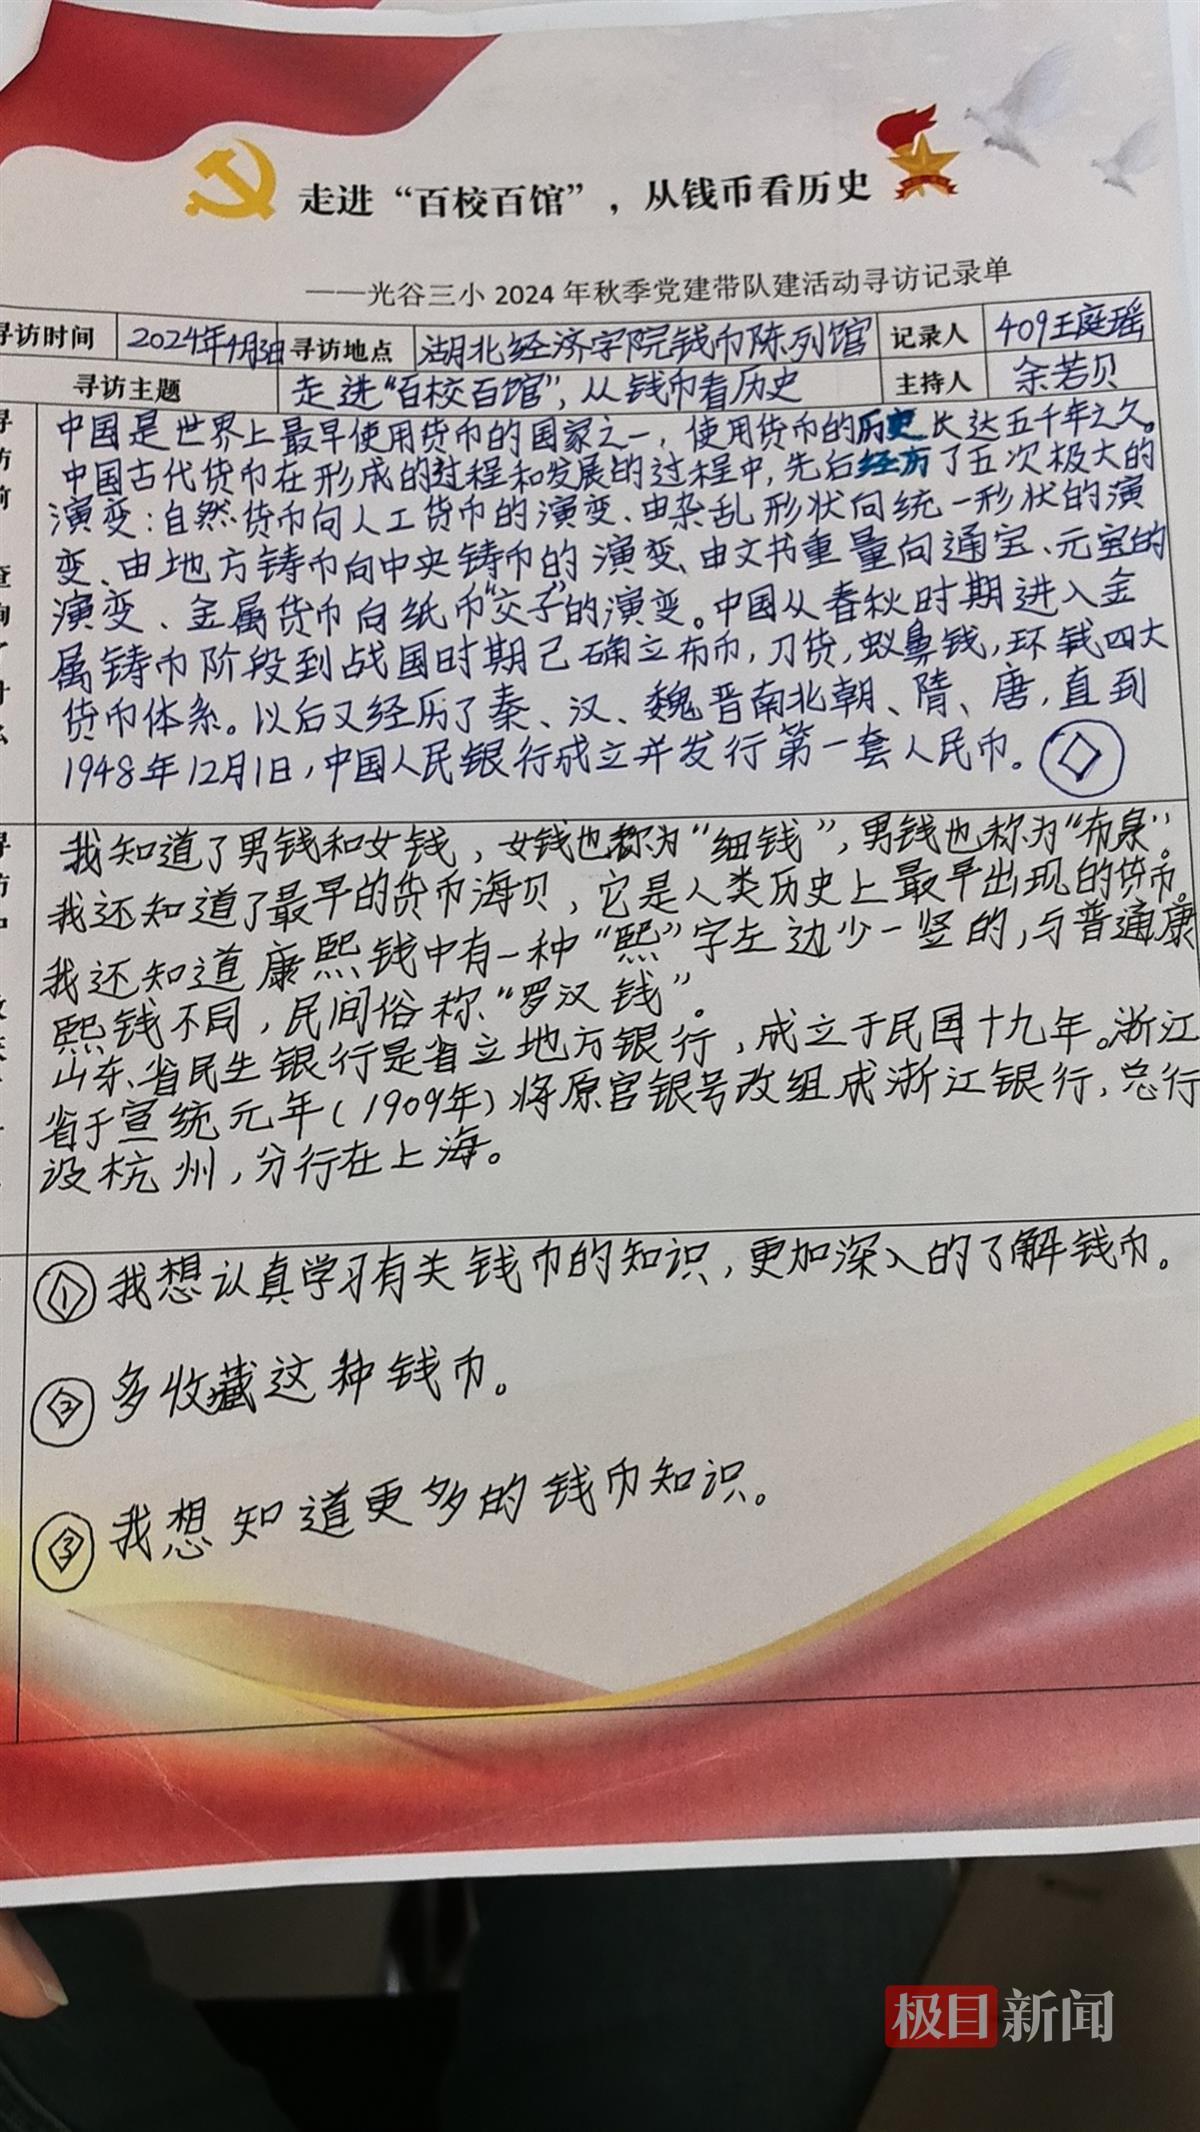 走进“百校百馆”，从钱币看历史
——光谷三小2024年秋季党建带队建活动寻访记录单
寻访时间 2024年4月3日 寻访地点 湖北经济学院钱币陈列馆 记录人 409王庭瑶
寻访主题 走进“百校百馆”，从钱币看历史 主持人 余若贝
中国是世界上最早使用货币的国家之一，使用货币的历史长达五千年之久。
中国古代货币在形成的过程和发展的过程中，先后经历了五次极大的
演变：自然货币向人工货币的演变、由杂乱形状向统一形状的演
变、由地方铸币向中央铸币的演变、由文书重量向通宝、元宝的
演变、金属货币向纸币“交子”的演变。中国从春秋时期进入金
属铸币阶段到战国时期已确立布币，刀货，蚁鼻钱，环钱四大
货币体系。以后又经历了秦、汉、魏晋南北朝、隋、唐，直到
1948年12月1日，中国人民银行成立并发行第一套人民币。
我知道了男钱和女钱，女钱也称为“细钱”，男钱也称为“布泉”。
我还知道了最早的货币海贝，它是人类历史上最早出现的货币。
我还知道康熙钱中有一种“熙”字左边少一竖的，与普通康
熙钱不同，民间俗称“罗汉钱”。
山东省民生银行是省立地方银行，成立于民国十九年。浙江
省于宣统元年（1909年）将原官银号改组成浙江银行，总行
设杭州，分行在上海。
① 我想认真学习有关钱币的知识，更加深入的了解钱币。
② 多收藏这种钱币。
③ 我想知道更多的钱币知识。
极目新闻